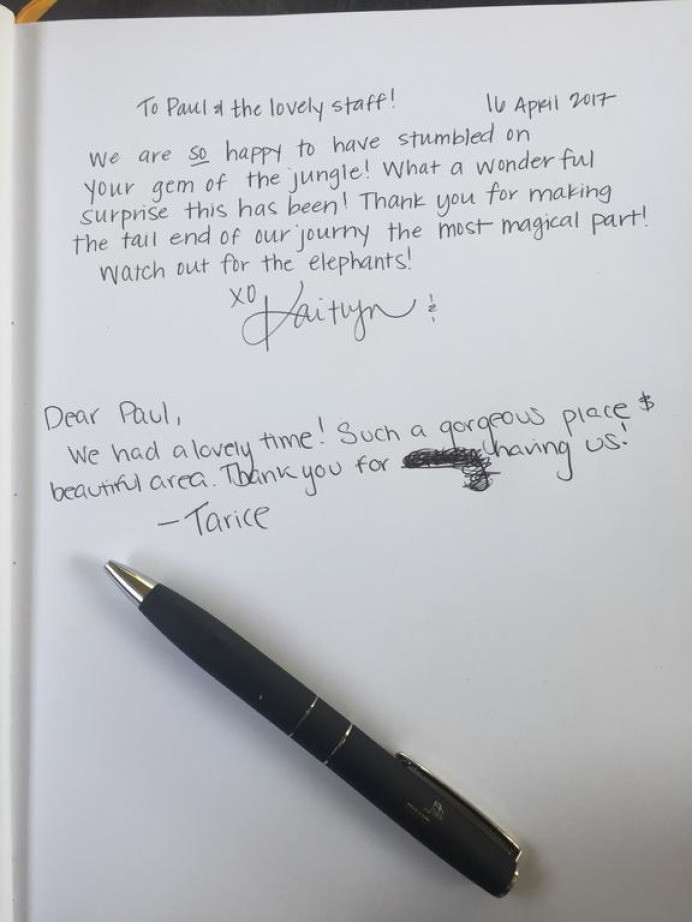 To Paul & the lovely staff! 16 April 2017
We are so happy to have stumbled on
your gem of the jungle! What a wonderful
surprise this has been! Thank you for making
the tail end of our journy the most magical part!
Watch out for the elephants!
XO
Kaitlyn &
Dear Paul,
We had a lovely time! Such a gorgeous place &
beautiful area. Thank you for having us!
- Tarice